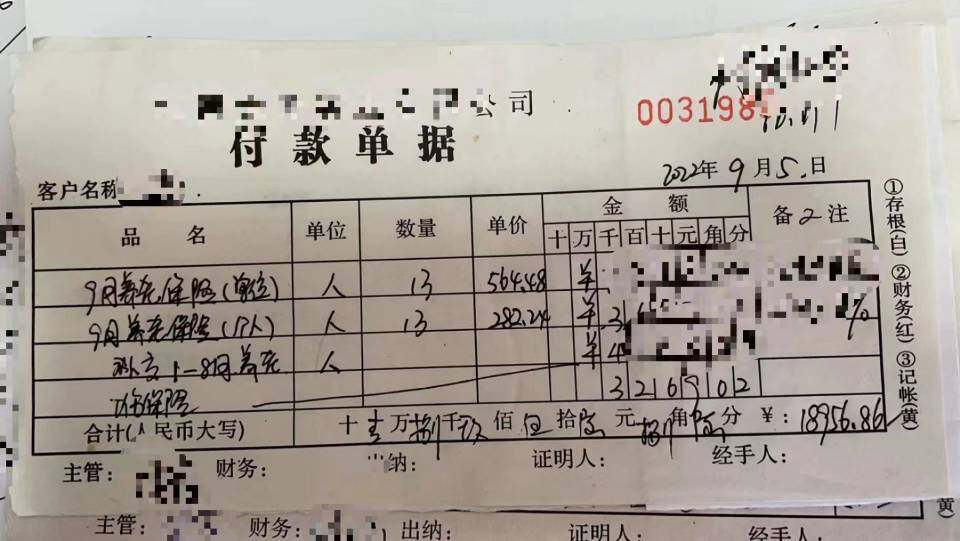 公司
003198
付款单据
10.11
2022年9月5日
客户名称
品名 单位 数量 单价 金额 备注
十万千百十元角分
9月养老保险(单位) 人 13 564.48 羊
9月养老保险(个人) 人 13 282.24 羊3
1-8月养老 人 羊4
保险 3216902
合计(人民币大写) 十 壹万捌千玖佰伍拾陆元捌角陆分 ¥:18956.86
主管: 财务: 出纳: 证明人: 经手人:
①存根(白) ②财务(红) ③记帐(黄)
主管: 财务: 出纳: 证明人: 经手人:
黄)